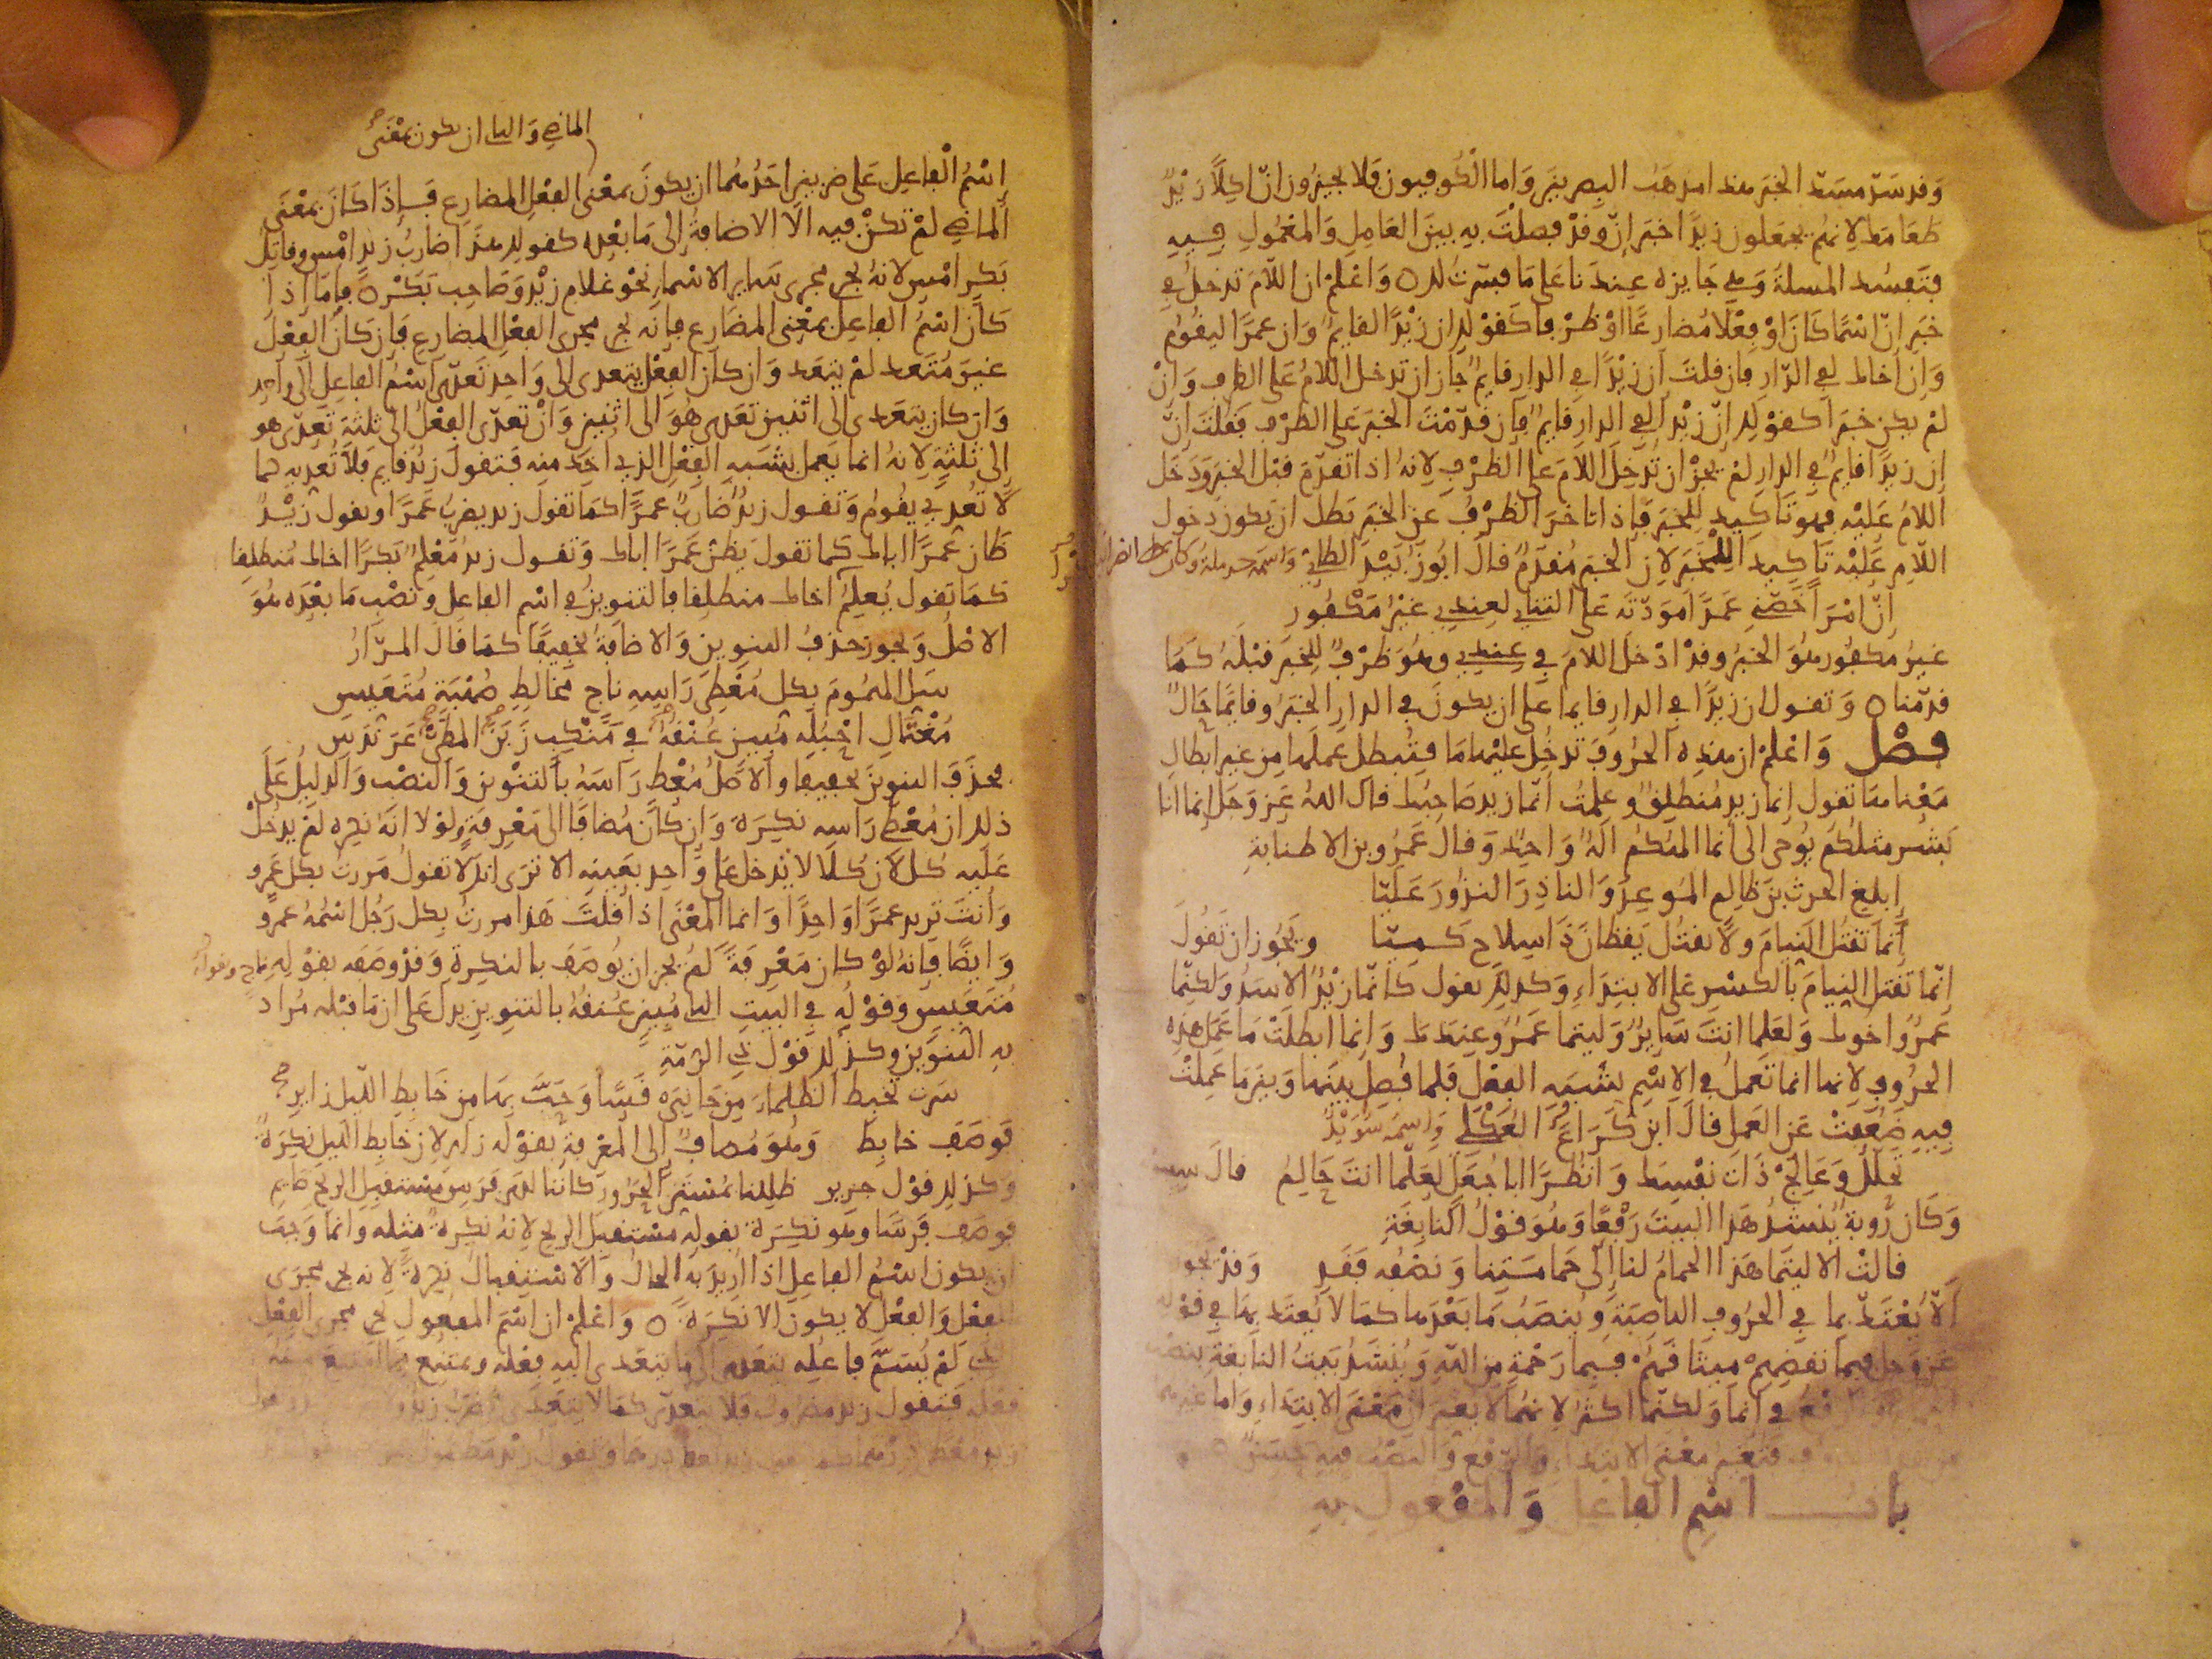 وقد سدّ مسدّ الخبر هذا مذهب البصريين واما الكوفيون فلا يجيزون انّ اكلاً زيدٌ
طعامك لانهم يجعلون زيدًا خبر انّ وقد فصلت به بين العامل والمعمول فيه
فتفسد المسلة وهي جايزة عندنا على ما فسّرت لك ٥ واعلم ان اللام تدخل في
خبر انّ اسمًا كان او فعلا مضارعًا او ظرفا كقولك ان زيدًا لقايمٌ وان عمرًا ليقوم
وان اخاك لفي الدار فان قلت ان زيدًا في الدار قايمٌ جاز ان تدخل اللام على الظرف وان
لم يكن خبرا كقولك انّ زيدًا لفي الدار قايمٌ فان قدّمت الخبر على الظرف فقلت انّ
ان زيدًا قايمٌ في الدار لم يجز ان تدخل اللام على الظرف لانه اذا تقدّم قبل الخبر ودخل
اللام عليه فهو تاكيد للخبر فاذا تاخر الظرف عن الخبر بطل ان يكون دخول
اللام عليه تاكيد للخبر لان الخبر مقدم قال ابو زبيد الطائي واسمه حرملة وكان
انّ امرًا خصّني عمدًا مودّته على التنائي لعندي غير مكفور
غير مكفور هو الخبر وقد ادخل اللام في عندي وهو ظرف للخبر قبله كما
قدّمنا ٥ وتقول ان زيدًا في الدار قايما على ان يكون في الدار الخبر وقايمًا حالٌ
فصل واعلم ان هذه الحروف تدخل عليها ما فتبطل عملها من غير ابطال
معناها تقول انما زيد منطلقٌ وعلمت انّما زيد صاحبك قال الله عز وجل انما انا
بشر مثلكم يوحى الى انما الهكم الهٌ واحدٌ وقال عمرو بن الاطنابة
ابلغ الحرث بن ظالم الموعد والناذر النذور عليّا
انما تقتل النيام ولا تقتل يقظان ذا سلاح كميّا ويجوز ان تقول
انّما تقتل النيام بالكسر على الابتداء وكذلك تقول كانّما زيدٌ الاسدُ ولكنّما
عمرٌو اخوك ولعلما انت سايرٌ وليتما عمرٌو عندك وانما ابطلت ما عمل هذه
الحروف لانها انما تعمل في الاسم لشبه الفعل فلما فُصل بينها وبين ما عملت
فيه ضعفت عن العمل قال ابن كراع العكلي واسمه سويد
تحلّل وعالج ذات نفسك وانظرا ابا جعل لعلّما انت حالم قال
وكان روبة يُنشد هذا البيت رفعًا وهو قول النابغة
قالت الا ليتما هذا الحمام لنا الى حمامتنا ونصفه فقد وقد يجوز
الّا يُعتدّ بما في الحروف الناصبة ويُنصب ما بعدها كما لا يُعتد بها في قوله
عز وجل فبما نقضهم ميثاقهم فبما رحمة من الله ويُنشد بيت النابغة بنصب
في انما ولكنّما اكثر لانهما لا يغيران معنى الابتداء واما
فتُغير معنى الابتداء والرفع والنصب فيه حسن
باب اسم الفاعل والمفعول به
الماضي والثاني ان يكون بمعنى
إسم الفاعل على ضربين احدهما ان يكون بمعنى الفعل المضارع فإذا كان بمعنى
الماضي لم تكن فيه الا الاضافة الى ما بعده كقولك هذا ضارب زيد امس وقاتل
بكر امس لانه يجري مجرى ساير الاسماء نحو غلام زيد وصاحب بكر ٥ فاما اذا
كان اسم الفاعل بمعنى المضارع فانه يجري مجرى الفعل المضارع فان كان الفعل
غير متعد لم يتعد وان كان الفعل يتعدى الى واحد تعدّى اسم الفاعل الى واحد
وان كان يتعدى الى اثنين تعدى هو الى اثنين وان تعدّى الفعل الى ثلثة تعدّى هو
الى ثلثة لانه انما يعمل لشبه الفعل الذي أخذ منه فتقول زيد قايم فلا تُعديه كما
لا تُعدي يقوم وتقول زيدٌ ضاربٌ عمرًا كما تقول زيد يضرب عمرًا وتقول زيدٌ
ظان عمرًا اباك كما تقول يظن عمرًا اباك وتقول زيد مُعلمٌ بكرًا اخاك منطلقا
كما تقول يُعلم اخاك منطلقا فالتنوين في اسم الفاعل ونصب ما بعده هو
الاصل ويجوز حذف التنوين والاضافة تخفيفًا كما قال المرّار
سل الهموم بكل مُعطي راسه ناج مخالط صهبة متعيس
مغتال احبله مُبين عنقه في منكب زبن المطيّ عرندس
فحذف التنوين تخفيفا والاصل مُعطٍ راسه بالتنوين والنصب والدليل على
ذلك ان مُعطي راسه نكرة وان كان مضافا الى معرفة ولولا انه نكرة لم يدخل
عليه كل لان كلا لا يدخل على واحد بعينه الا ترى انك لا تقول مررت بكل عمرو
وانت تريد عمرًا واحدًا وانما المعنى اذا قلت هذا مررت بكل رجل اسمه عمرو
وايضًا فانه لو كان معرفة لم يجز ان يُوصف بالنكرة وقد وصفه بقوله ناج وبقوله
متعيس وقوله في البيت الثاني مُبين عنقه بالتنوين يدل على ان ما قبله مراد
به التنوين وكذلك قول ذي الرمّة
سرت تخبط الظلماء من جانبي قسًا وحبّ بها من خابط الليل زاير
فوصف خابط وهو مضاف الى المعرفة بقوله زاير لان خابط الليل نكرة
وكذلك قول جرير ظللنا بمستنّ الحرور كاننا لدى فرس مستقبل الريح صايم
فوصف فرسًا وهو نكرة بقوله مستقبل الريح لانه نكرة مثله وانما وجب
ان يكون اسم الفاعل اذا اريد به الحال والاستقبال نكرة لانه يجري مجرى
الفعل والفعل لا يكون الا نكرة ٥ واعلم ان اسم المفعول يجري مجرى الفعل
الذي لم يُسمّ فاعله يتعدى الى ما يتعدى اليه فعله ويمتنع مما امتنع منه
فعله فتقول زيد مضروب فلا يتعدّى كما لا يتعدى يُضرب زيد